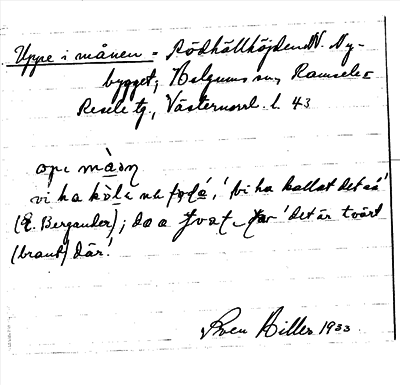 Uppe i månen = Rödhällhöjden N. Ny-
bygget, Helgums sn, Ramsele o
Resele tg., Västernorrl. l. 43
vi ha 'vi ha kallat det så'
(E. Bergander); 'det är tvärt
(brant) där'.
Sven Hiller 1933